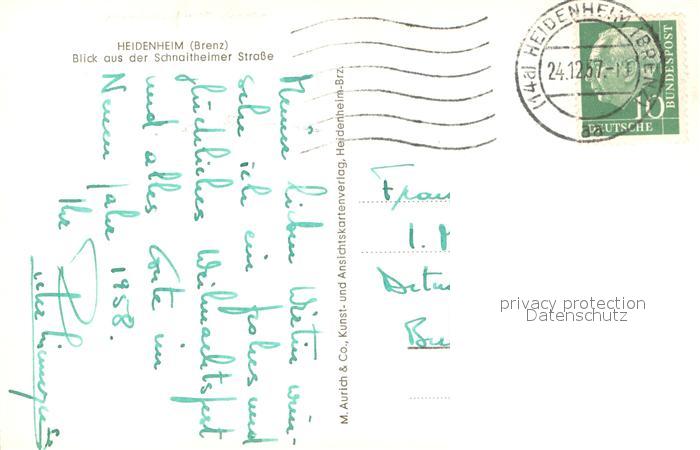 HEIDENHEIM (Brenz)
Blick aus der Schnaitheimer Straße
Meiner lieben Wirtin wün-
sche ich ein frohes und
glückliches Weihnachtsfest
und alles Gute im
Neuen Jahr 1958.
Ihr
M. Aurich & Co., Kunst- und Ansichtskartenverlag, Heidenheim-Brz.
(14a) HEIDENHEIM (BRENZ)
24.12.57.-1
aa
10
DEUTSCHE
BUNDESPOST
Frau
1.
privacy protection
Datenschutz